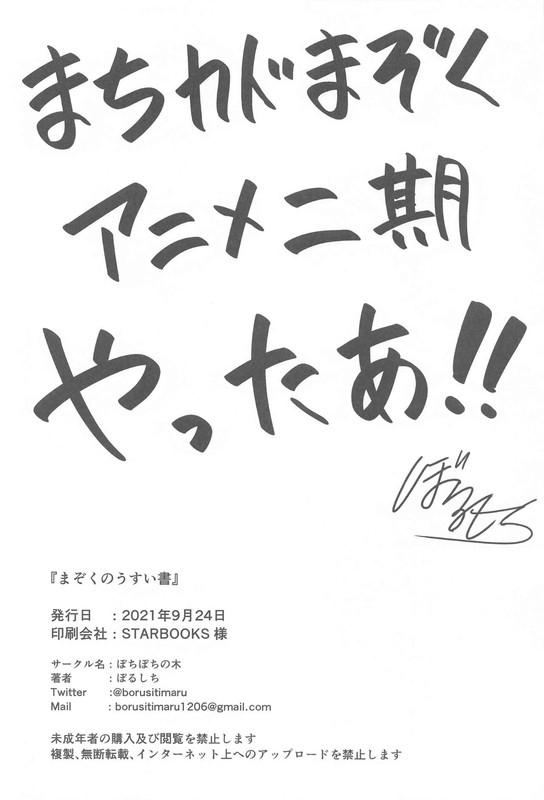 まちカドまぞく
アニメ二期
やったあ!!
ぼるしち
『まぞくのうすい書』
発行日　：2021年9月24日
印刷会社：STARBOOKS 様
サークル名：ぼちぼちの木
著者　　　：ぼるしち
Twitter　　:@borusitimaru
Mail　　　：borusitimaru1206@gmail.com
未成年者の購入及び閲覧を禁止します
複製、無断転載、インターネット上へのアップロードを禁止します